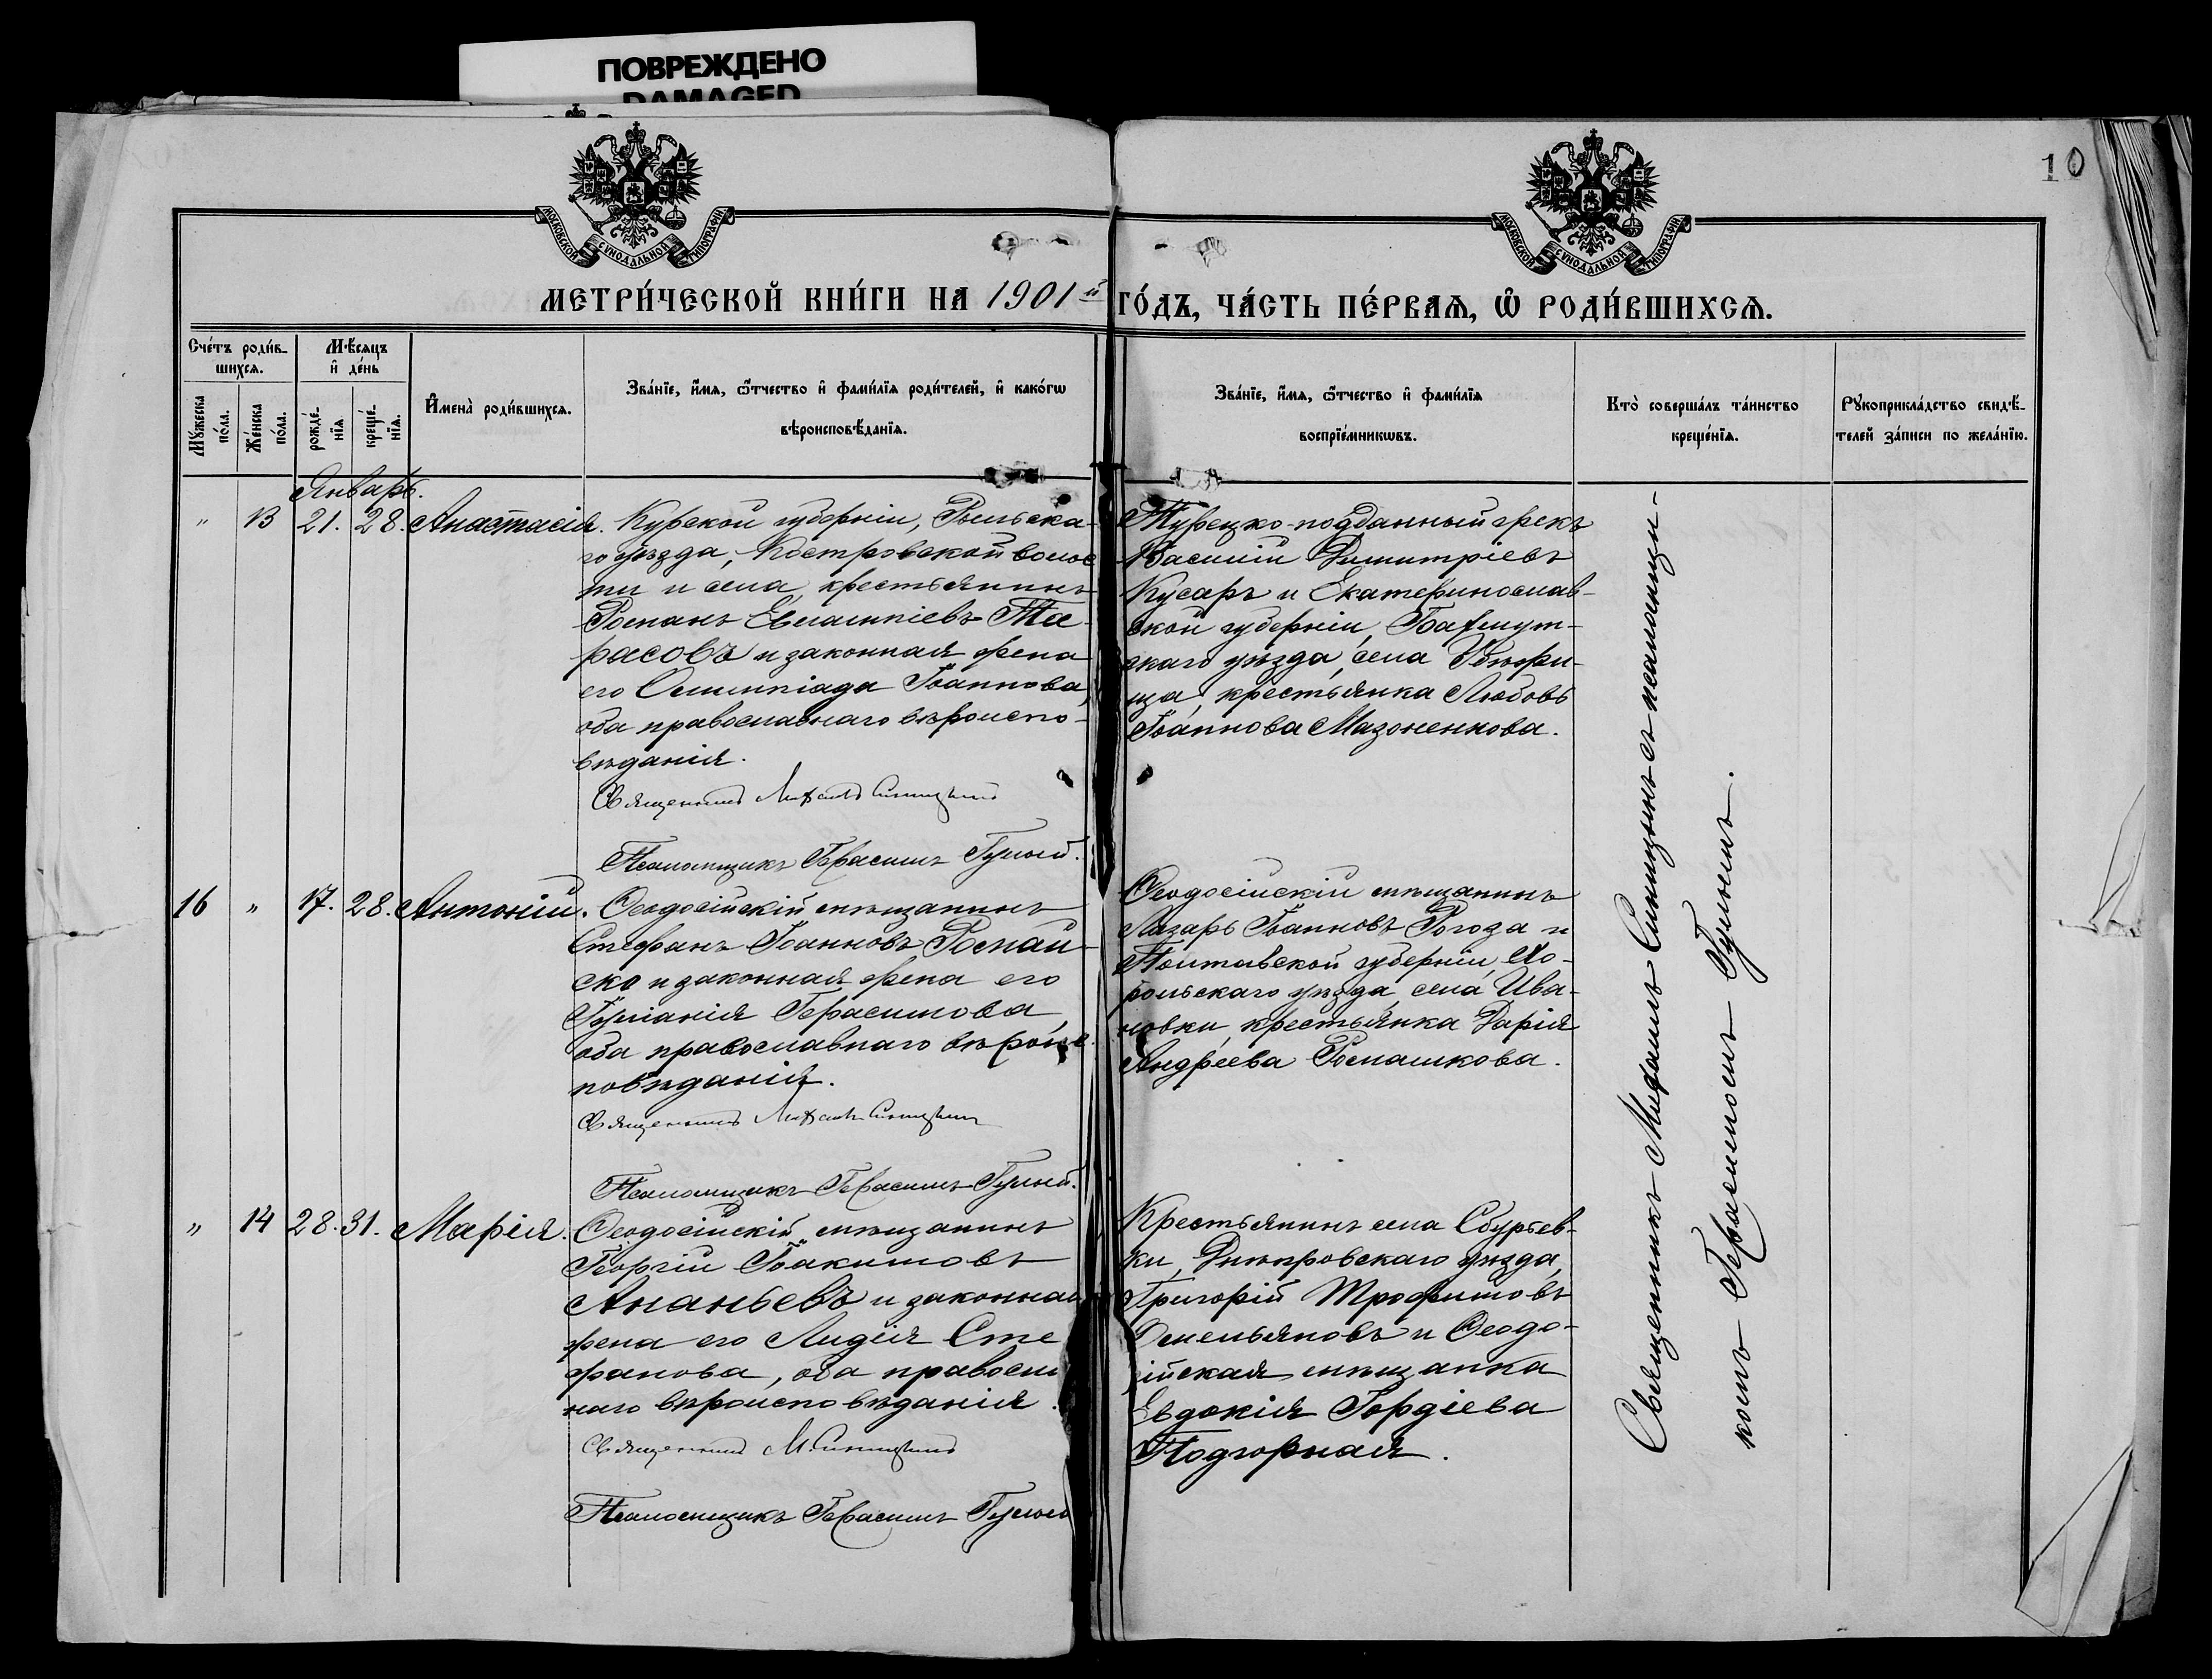 ПОВРЕЖДЕНО
DAMAGED
10
МОСКОВСКОЙ СѴНОДАЛЬНОЙ ТИПОГРАФІИ
МОСКОВСКОЙ СѴНОДАЛЬНОЙ ТИПОГРАФІИ
МЕТРИ́ЧЕСКОЙ КНИ́ГИ НА 1901й ГО́ДЪ, ЧА́СТЬ ПЕ́РВАѦ, Ѡ҆ РОДИ́ВШИХСѦ.
Сче́тъ роди́в-
шихсѧ.
Мѹ́жеска по́ла.
Же́нска по́ла.
Мѣ́сѧцъ и҆ де́нь
рожде́-нїѧ
креще́-нїѧ.
И҆мена̀ роди́вшихсѧ.
Зва́нїе, и҆́мѧ, ѻ҆́тчество и҆ фами́лїѧ роди́телей, и҆ како́гѡ
вѣроисповѣ́данїѧ.
Зва́нїе, и҆́мѧ, ѻ҆́тчество и҆ фами́лїѧ
воспрїе́мникѡвъ.
Кто̀ соверша́лъ та́инство
креще́нїѧ.
Рѹкоприкла́дство свидѣ́-
телей за́писи по жела́нїю.
Январь.
" 13 21. 28. Анастасія. Курской губерніи, Рыльска-
го уѣзда, Костровской волос
ти и села, крестьянинъ
Романъ Евлампіевъ Та-
расовъ и законная жена
его Олимпіада Іоаннова,
оба православнаго вѣроиспо-
вѣданія.
Священникъ Михаилъ Синицынъ
Псаломщикъ Герасимъ Гулый.
Турецко-подданный грекъ
Василій Димитріевъ
Кусаръ и Екатеринослав-
ской губерніи, Бахмут-
скаго уѣзда, села
ща, крестьянка Любовь
Іоаннова Мазоненкова.
16 " 17. 28. Антоній. Ѳеодосійскій мѣщанинъ
Стефанъ Іоанновъ Ромай-
ско и законная жена его
Іуліанія Герасимова,
оба православнаго вѣроис-
повѣданія.
Священникъ Михаилъ Синицынъ
Псаломщикъ Герасимъ Гулый.
Ѳеодосійскій мѣщанинъ
Лазарь Іоанновъ Рогоза и
Полтавской губерніи, Хо-
рольскаго уѣзда, села Ива-
новки, крестьянка Дарія
Андреева Ромашкова.
" 14 28. 31. Марія. Ѳеодосійскій мѣщанинъ
Георгій Іоакимовъ
Ананьевъ и законная
жена его Лидія Сте
фанова, оба правосла
наго вѣроисповѣданія.
Священникъ М. Синицынъ
Псаломщикъ Герасимъ Гулый
Крестьянинъ села Збурьев-
ки, Днѣпровскаго уѣзда,
Григорій Трофимовъ
Емельяновъ и Ѳеодо-
сійская мѣщанка
Евдокія Гордіева
Подгорная.
Священникъ Михаилъ Синицынъ съ псаломщи-
комъ Герасимомъ Гулымъ.